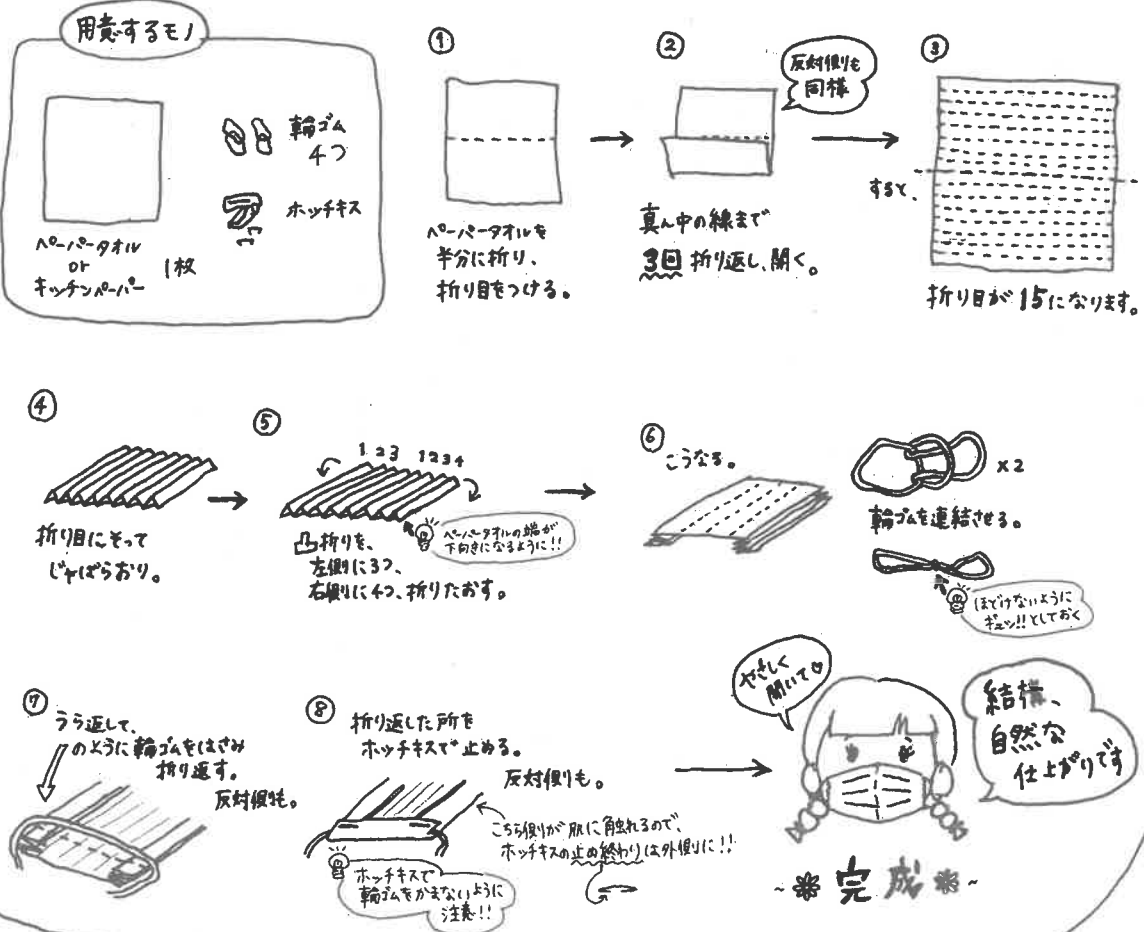 用意するモノ
ペーパータオル
or
キッチンペーパー
1枚
輪ゴム
4つ
ホッチキス
①
ペーパータオルを
半分に折り、
折り目をつける。
②
反対側も
同様
真ん中の線まで
3回 折り返し、開く。
③
すると、
折り目が15になります。
④
折り目にそって
じゃばらおり。
⑤
1 2 3 1 2 3 4
凸折りを、
左側に3つ、
右側に4つ、折りたおす。
ペーパータオルの端が
下向きになるように!!
⑥
こうなる。
×2
輪ゴムを連結させる。
ほどけないように
ギュッ!!としておく
⑦
うら返して、
のように輪ゴムをはさみ
折り返す。
反対側も。
⑧
折り返した所を
ホッチキスで止める。
反対側も。
こちら側が肌に触れるので、
ホッチキスの止め終わりは外側に!!
ホッチキスで
輪ゴムをかまないように
注意!!
やさしく
開いて♡
結構、
自然な
仕上がりです
~❋完成❋~